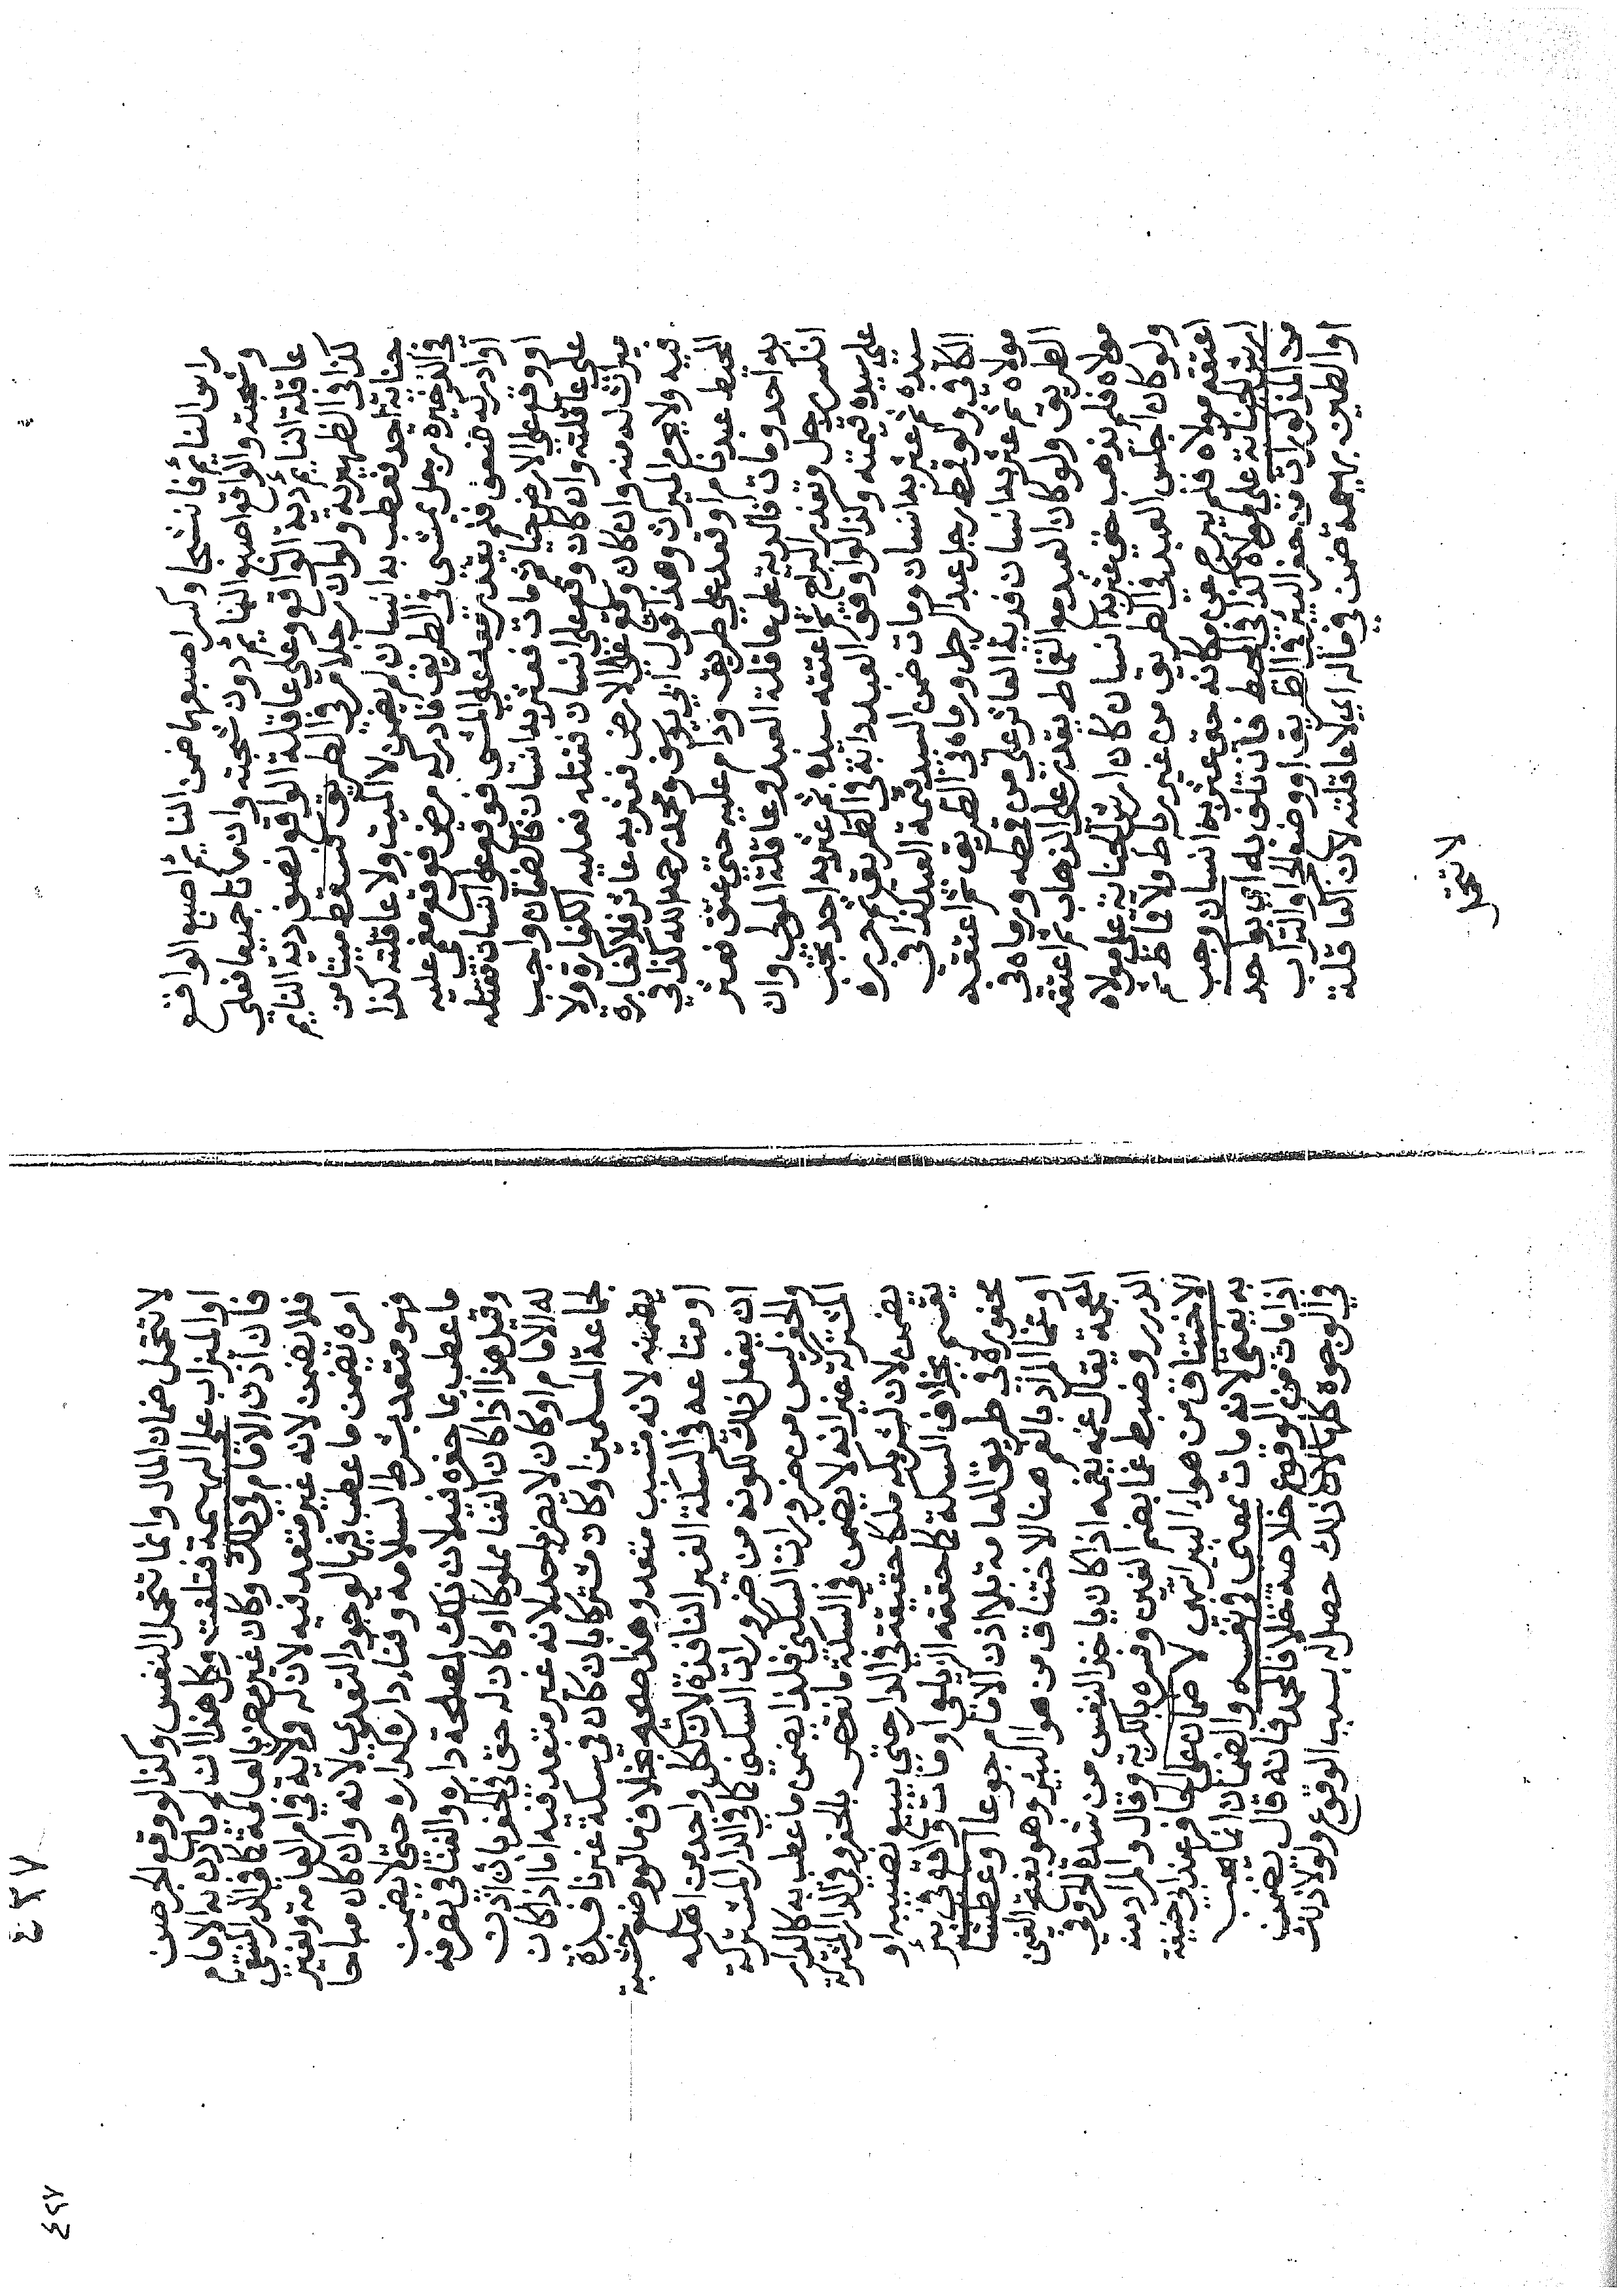 راس النايم فانشجا وكسرا صبعهما ضمن النايم اصبع الواقع
وشجته والواقع اصبع النايم دون شجته وان ماتا جميعا فعلي
عاقلة النايم دية الواقع وعلي عاقلة الواقع نصف دية النايم
كذا في الظهيرية ولو ان رجلا مر في الطريق فسقط ميتا من
جناية احد فعطب به انسان لم يضمن لا الميت ولا عاقلته كذا
في الذخيرة رجل يمشي في الطريق فادركه مرض فوقع مغمي عليه
او ادركه ضعف فلم يقدر معه علي المشي فوقع علي انسان فقتله
او وقع علي الارض حيا ثم مات فعثر به انسان فالضمان واجب
علي عاقلته وان كان وقع علي انسان فقتله فعليه الكفارة ولا
ميراث له منه وان كان وقع علي الارض فعثر به عاثر فلا كفارة
فيه ولا يحرم الميراث وهذا قول ابي يوسف ومحمد رحمه الله كذا في
المحيط عبد نام او قعد علي طريق ودام عليه حتي عتق فعثر
به احد ومات فالدية علي عاقلة العبد وعاقلة المولي وان
انكسر رجل وتعذر البراح ثم اعتقه سيده ثم عثر به احد يجب
علي سيده قيمته وكذا لو اوقف العبد دابة في الطريق ثم حرره
سيده ثم عثر بها انسان ومات ضمن السيد قيمة العبد كذا في
الكافي ولو قمطه رجل عبد الرجل ورماه في الطريق ثم اعتقه
مولاه ثم عثر به انسان فدية العاثر علي من قمطه ورماه في
الطريق ولو كان العبد مع القماط يقدر علي الذهاب ثم اعتقه
مولاه فلم يذهب حتي عثر به انسان كان ارش الجناية علي مولاه
ولو كان اجلس العبد في الطريق من غير رباط ولا قماط ثم
اعتقه مولاه فلم يبرح عن مكانه حتي عثر به انسان وجب
ارش الجناية علي مولاه كذا في المحيط فان تلف به اي بواحد
من المذكورات من حفر البئر في الطريق او وضع الحجر او التراب
او الطين بهيمة ضمن في ماله اي لا عاقلته لان العاقلة
لا تتحمل
٤٢٧
لا تتحمل ضمان المال وانما تتحمل النفس وكذا لو وقع الجرصن
او الميزاب علي البهيمة فتلفت وكل هذا ان لم ياذن به الامام
فان اذن الامام في ذلك وكان غير مضر بالعامة كما في الدر المنتقي
فلا يضمن لانه غير متعد فيه لان له ولاية في امر العامة ولغير
امره يضمن ما عطب فيها لوجود التعدي لانه وان كان مباحا
فهو مقيد بشرط السلامه وفناء داره كداره حتي لا يضمن
ما عطب بما حفره فيه لان ذلك لمصلحة داره والفنا في تصرفه
وقيل هذا اذا كان الفنا مملوكا او كان له حق في الحفر بان اذن
له الامام او كان لا يضر باحد لانه غير متعد فيه اما اذا كان
لجماعة المسلمين او كان مشتركا بان كان في سكة غير نافذة
يضمنه لانه متسبب متعد وهذا صحيح بخلاف ما لو وضع خشبة
او متاعه في السكة الغير النافذة لان لكل واحد من اهله
ان يفعل ذلك لكونه من ضرورات السكني كما في الدار المشتركة
والحفر ليس من ضرورات السكني فلذا يضمن ما عطب به كالدار
المشتركة غير انه لا يضمن في السكة ما نقص بالحفر وفي الدار المشتركة
يضمن لان لشريكه ملكا حقيقة في الدار حتي يبيع نصيبه او
يقسم بخلاف السكة كما حققه الزيلعي او مات واقع في بئر
محفورة في طريق العامة بلا اذن الامام جوعا او عطشا
او غما المراد بالغم هنا الاختناق من هوا البئر وهو بفتح الغين
المعجمة يقال غمه يغمه اذا كان ياخذ النفس من شدة الحر وفي
الدرر وضبط غما بضم الغين وفسره بالكربة وقال والمراد منه
الاختناق من هواء البير انتهي لا ضمان علي الحافر عند ابي حنيفة
به يفتي لانه مات بمعني في نفسه والضمان انما يجب
اذا مات من الوقوع خلاصه خلافا لمحمد فانه قال يضمن
في الوجوه كلها لان ذلك حصل به بسبب الوقوع ولولا ذلك
٤٢٧